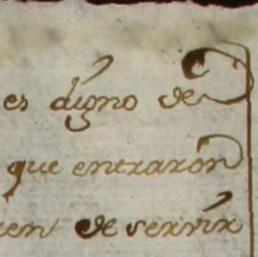 es digno de
que entraron
en de servir